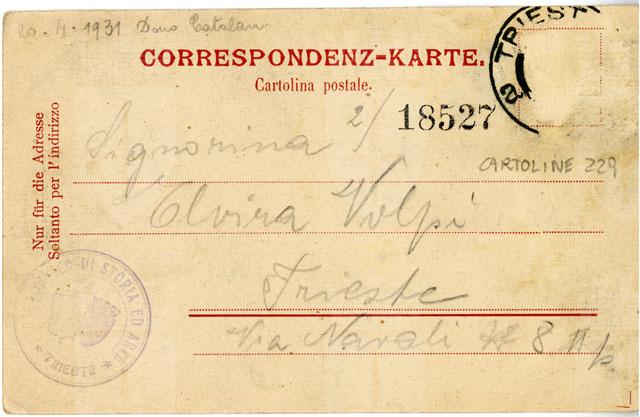 20.4.1931 Dono Catalan
CORRESPONDENZ-KARTE.
Cartolina postale.
Nur für die Adresse
Soltanto per l'indirizzo
TRIEST
2
2/
18527
CARTOLINE 229
Signorina
Elvira Volpi
Trieste
Via Navali No 8 II p.
DI STORIA ED ARTE
* TRIESTE *